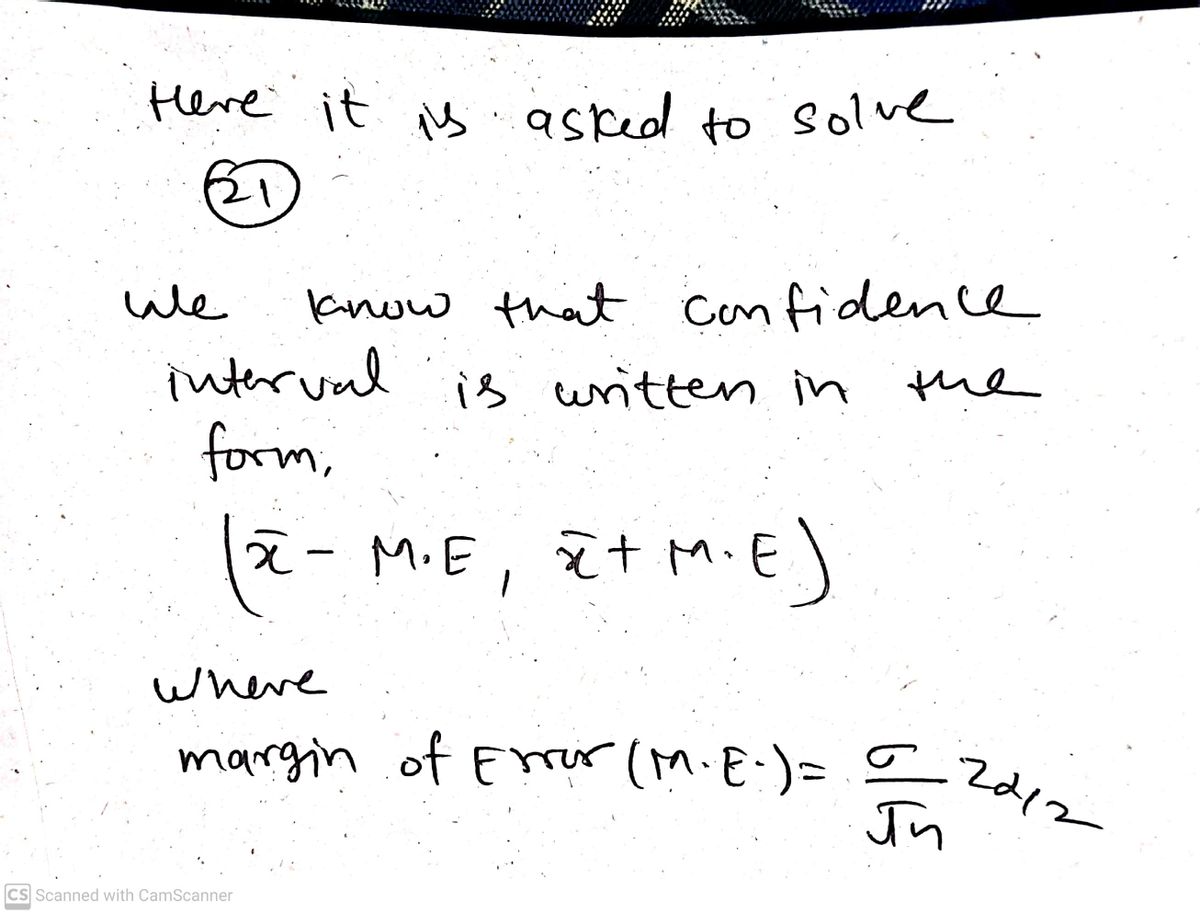 Here it is asked to solve
21
We know that confidence
interval is written in the
form,
(x̄ - M.E, x̄ + M.E)
where
margin of Error (M.E.) = σ/√n Zα/2
CS Scanned with CamScanner